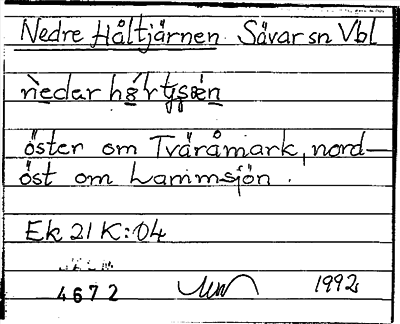 Nedre Håltjärnen. Sävar sn Vbl
öster om Tväråmark, nord-
öst om Lammsjön.
Ek 21 K:04
4672 1992